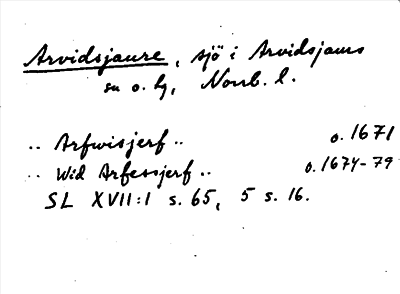 Arvidsjaure, sjö i Arvidsjaurs
sn o. lg, Norrb. l.
.. Arfwisjerf .. o. 1671
.. Wid Arfessjerf .. o. 1674-79
SL XVII:1 s. 65, 5 s. 16.